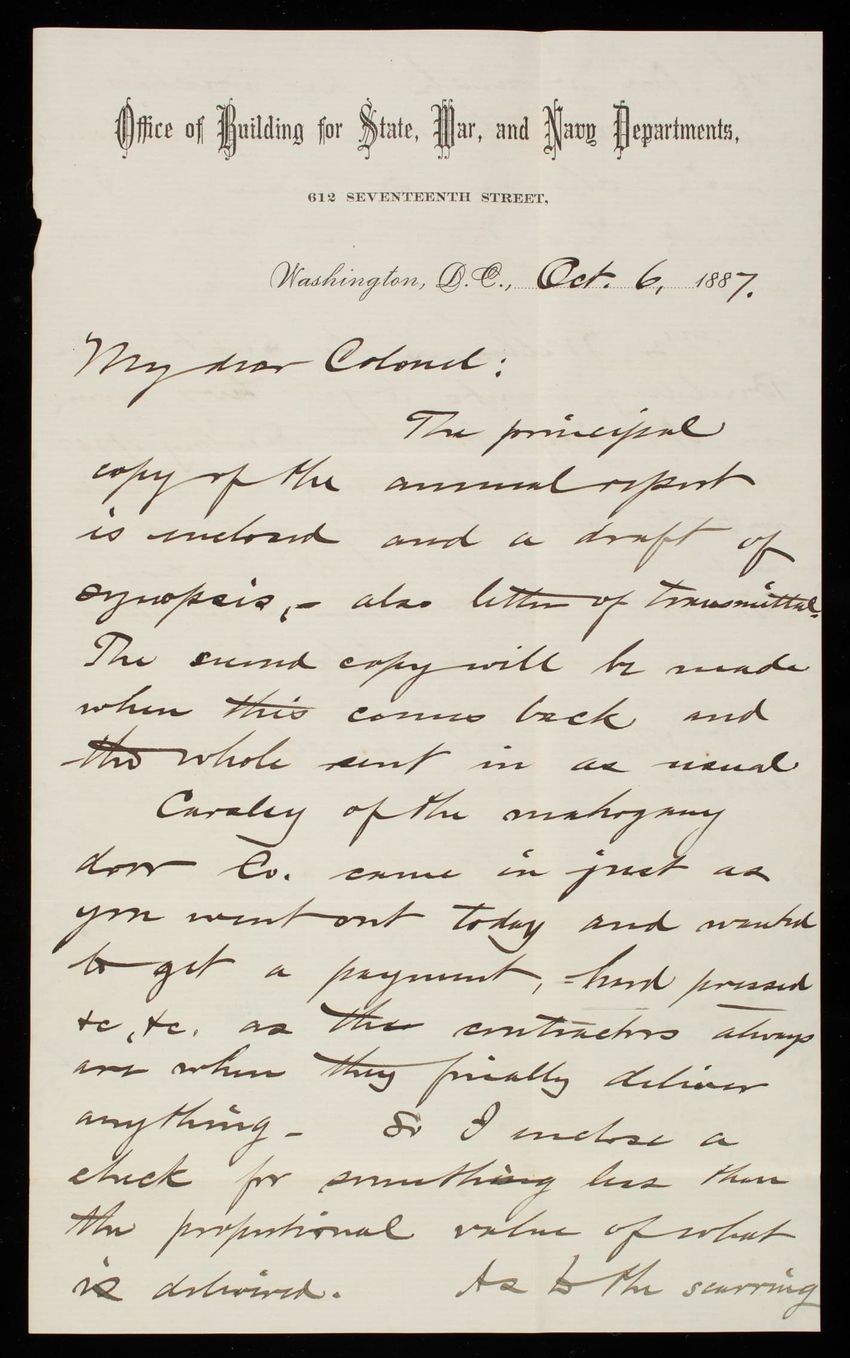 Office of Building for State, War, and Navy Departments,
612 SEVENTEENTH STREET,
Washington, D.C., Oct. 6, 1887.
My dear Colonel:
The principal
copy of the annual report
is inclosed and a draft of
synopsis, - also letter of transmittal.
The second copy will be made
when this comes back and
the whole sent in as usual
Carsley of the mahogany
door Co. came in just as
you went out today and wanted
to get a payment, - hard pressed
&c, &c. as the contractors always
are when they finally deliver
anything - So I inclose a
check for something less than
the proportional value of what
is delivered. As to the scurring